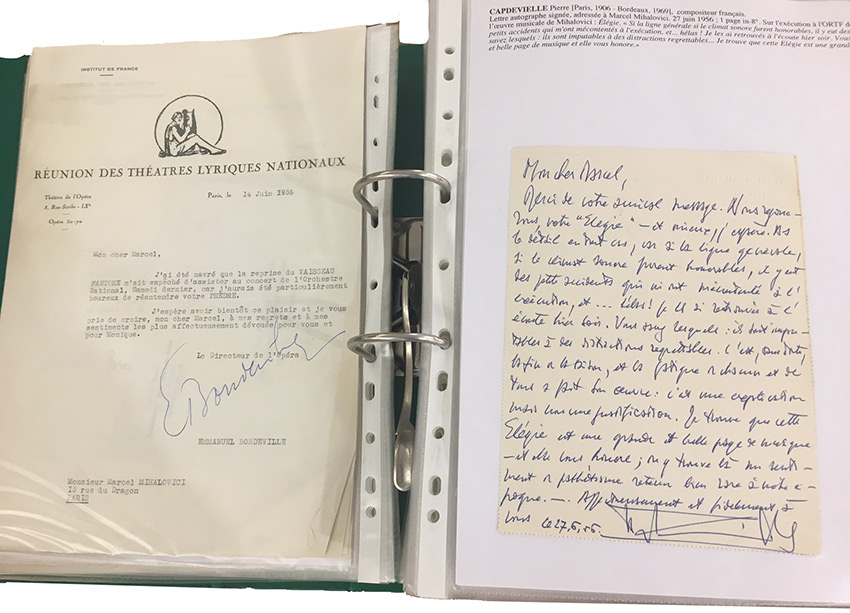 INSTITUT DE FRANCE
RÉUNION DES THÉATRES LYRIQUES NATIONAUX
Théâtre de l'Opéra
8, Rue Scribe - IXe
Opéra 50-70
Paris, le 14 Juin 1956
Mon cher Marcel,
J'ai été navré que la reprise du VAISSEAU
FANTOME m'ait empêché d'assister au concert de l'Orchestre
National, Samedi dernier, car j'aurais été particulièrement
heureux de réentendre votre PHEDRE.
J'espère avoir bientôt ce plaisir et je vous
prie de croire, mon cher Marcel, à mes regrets et à mes
sentiments les plus affectueusement dévoués pour vous et
pour Monique.
Le Directeur de l'Opéra
E Bondeville
EMMANUEL BONDEVILLE
Monsieur Marcel MIHALOVICI
15 rue du Dragon
PARIS
CAPDEVIELLE Pierre [Paris, 1906 - Bordeaux, 1969], compositeur français.
Lettre autographe signée, adressée à Marcel Mihalovici. 27 juin 1956 ; 1 page in-8°. Sur l'exécution à l'ORTF d
l'œuvre musicale de Mihalovici : Élégie. « Si la ligne générale si le climat sonore furent honorables, il y eut des
petits accidents qui m'ont mécontentés à l'exécution, et... hélas ! Je les ai retrouvés à l'écoute hier soir. Vous
savez lesquels : ils sont imputables à des distractions regrettables... Je trouve que cette Elégie est une grand
et belle page de musique et elle vous honore.»
Mon cher Marcel,
Merci de votre amical message. Nous
vous, votre "Elégie" - et mieux, j'espère.
le détail en tout cas, car si la ligne générale,
si le climat sonore furent honorables, il y eut
des petits accidents qui m'ont mécontenté à l'
exécution, et ... hélas ! je les ai retrouvés à l'
écoute hier soir. Vous savez lesquels : ils sont impu-
tables à des distractions regrettables. C'est, sans doute,
la fin de la saison, et la fatigue de chacun et de
tous a fait son œuvre : c'est une explication
mais non une justification. Je trouve que cette
Elégie est une grande et belle page de musique
- et elle vous honore ; on y trouve là un senti-
ment de pathétisme retenu bien rare à notre é-
poque. -. Affectueusement et fidèlement, à
vous le 27.6.56.